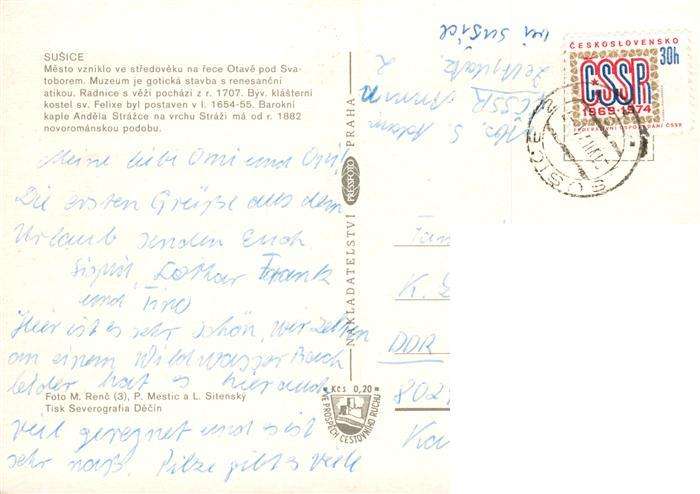 SUŠICE
Město vzniklo ve středověku na řece Otavě pod Sva-
toborem. Muzeum je gotická stavba s renesanční
atikou. Radnice s věží pochází z r. 1707. Býv. klášterní
kostel sv. Felixe byl postaven v l. 1654-55. Barokní
kaple Anděla Strážce na vrchu Stráži má od r. 1882
novorománskou podobu.
Meine liebe Omi und Opi!
Die ersten Grüße aus dem
Urlaub senden Euch
Sigrid, Lothar Frank
und Tino
Hier ist es sehr schön, wir zelten
an einem Wildwasser Bach
leider hat s hier auch
viel geregnet und s ist
sehr naß. Pilze gibt s viele
Foto M. Renč (3), P. Mestic a L. Sitenský
Tisk Severografia Děčín
NAKLADATELSTVÍ PRESSFOTO PRAHA
Kčs 0,20
VE PROSPĚCH CESTOVNÍHO RUCHU
bei Sušice
Zeltplatz
ČSSR
ČESKOSLOVENSKO
30h
ČSSR
1969-1974
FEDERATIVNÍ USPOŘÁDÁNÍ ČSSR
K.
DDR
802